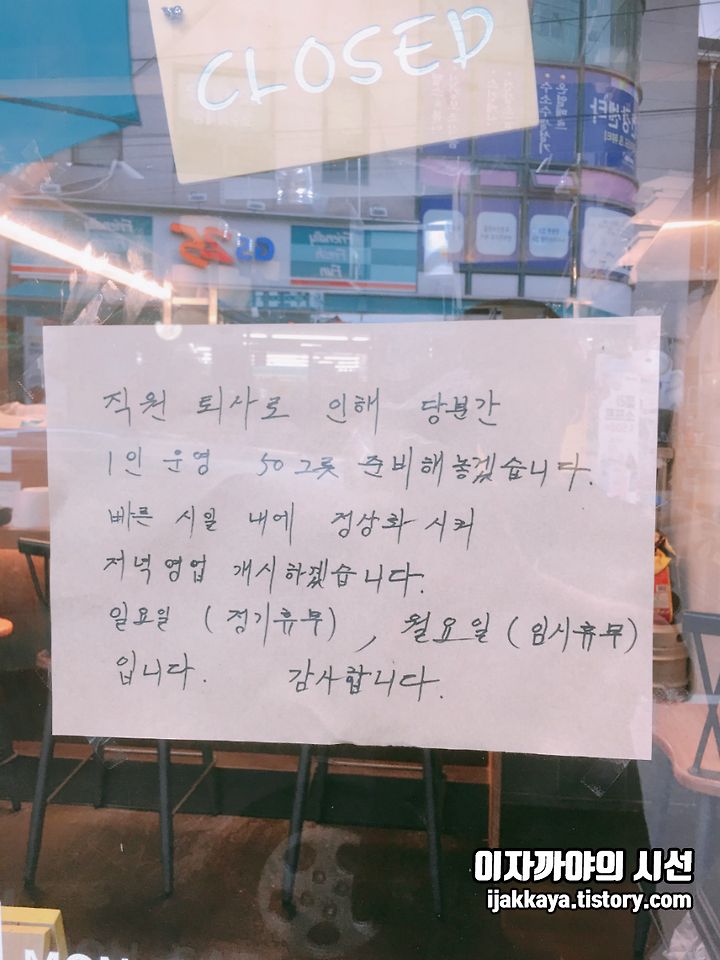 CLOSED
GS25
Friendly
Fresh
Fun
직원 퇴사로 인해 당분간
1인 운영 50그릇 준비해놓겠습니다.
빠른 시일 내에 정상화 시켜
저녁영업 개시하겠습니다.
일요일 (정기휴무), 월요일(임시휴무)
입니다. 감사합니다.
이자까야의 시선
ijakkaya.tistory.com
MON